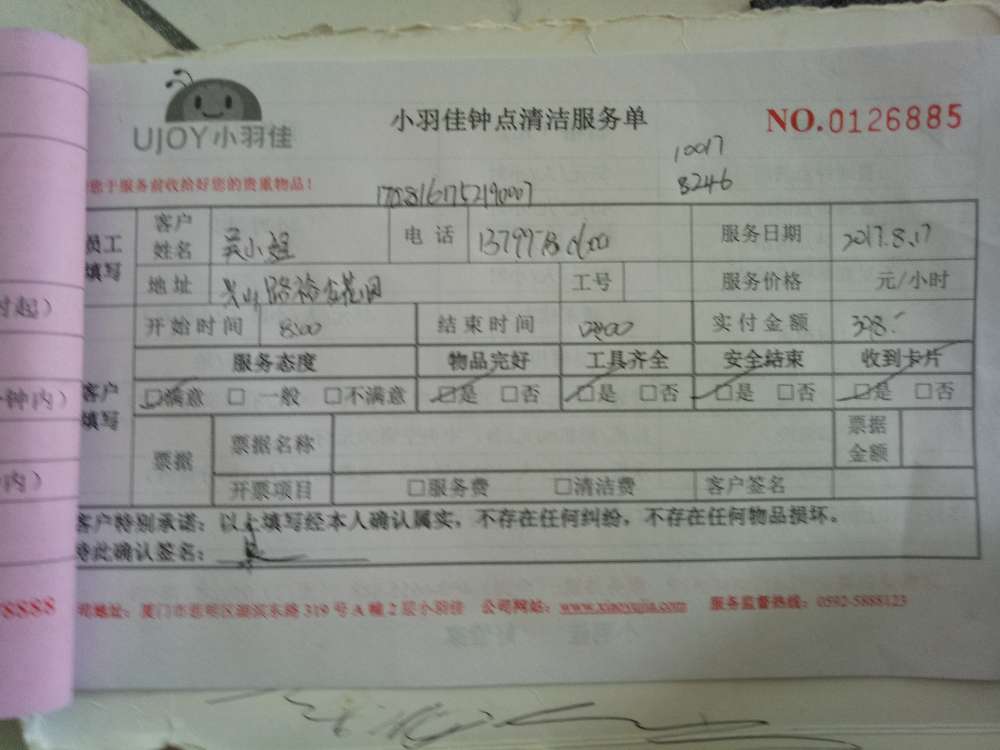 UJOY小羽佳
小羽佳钟点清洁服务单
NO.0126885
10017
8246
您于服务前收给好您的贵重物品！
员工填写
客户姓名 吴小姐 电话 服务日期 2017.8.17
地址 工号 服务价格 元/小时
开始时间 8:00 结束时间 实付金额
客户填写
服务态度 物品完好 工具齐全 安全结束 收到卡片
☑满意 □一般 □不满意 ☑是 □否 ☑是 □否 ☑是 □否 ☑是 □否
票据 票据名称 票据金额
开票项目 □服务费 □清洁费 客户签名
客户特别承诺：以上填写经本人确认属实，不存在任何纠纷，不存在任何物品损坏。
特此确认签名：
司地址：厦门市思明区湖滨东路319号A幢2层小羽佳 公司网站：www.xiaoyujia.com 服务监督热线：0592-5888123
时起）
钟内）
内）
8888